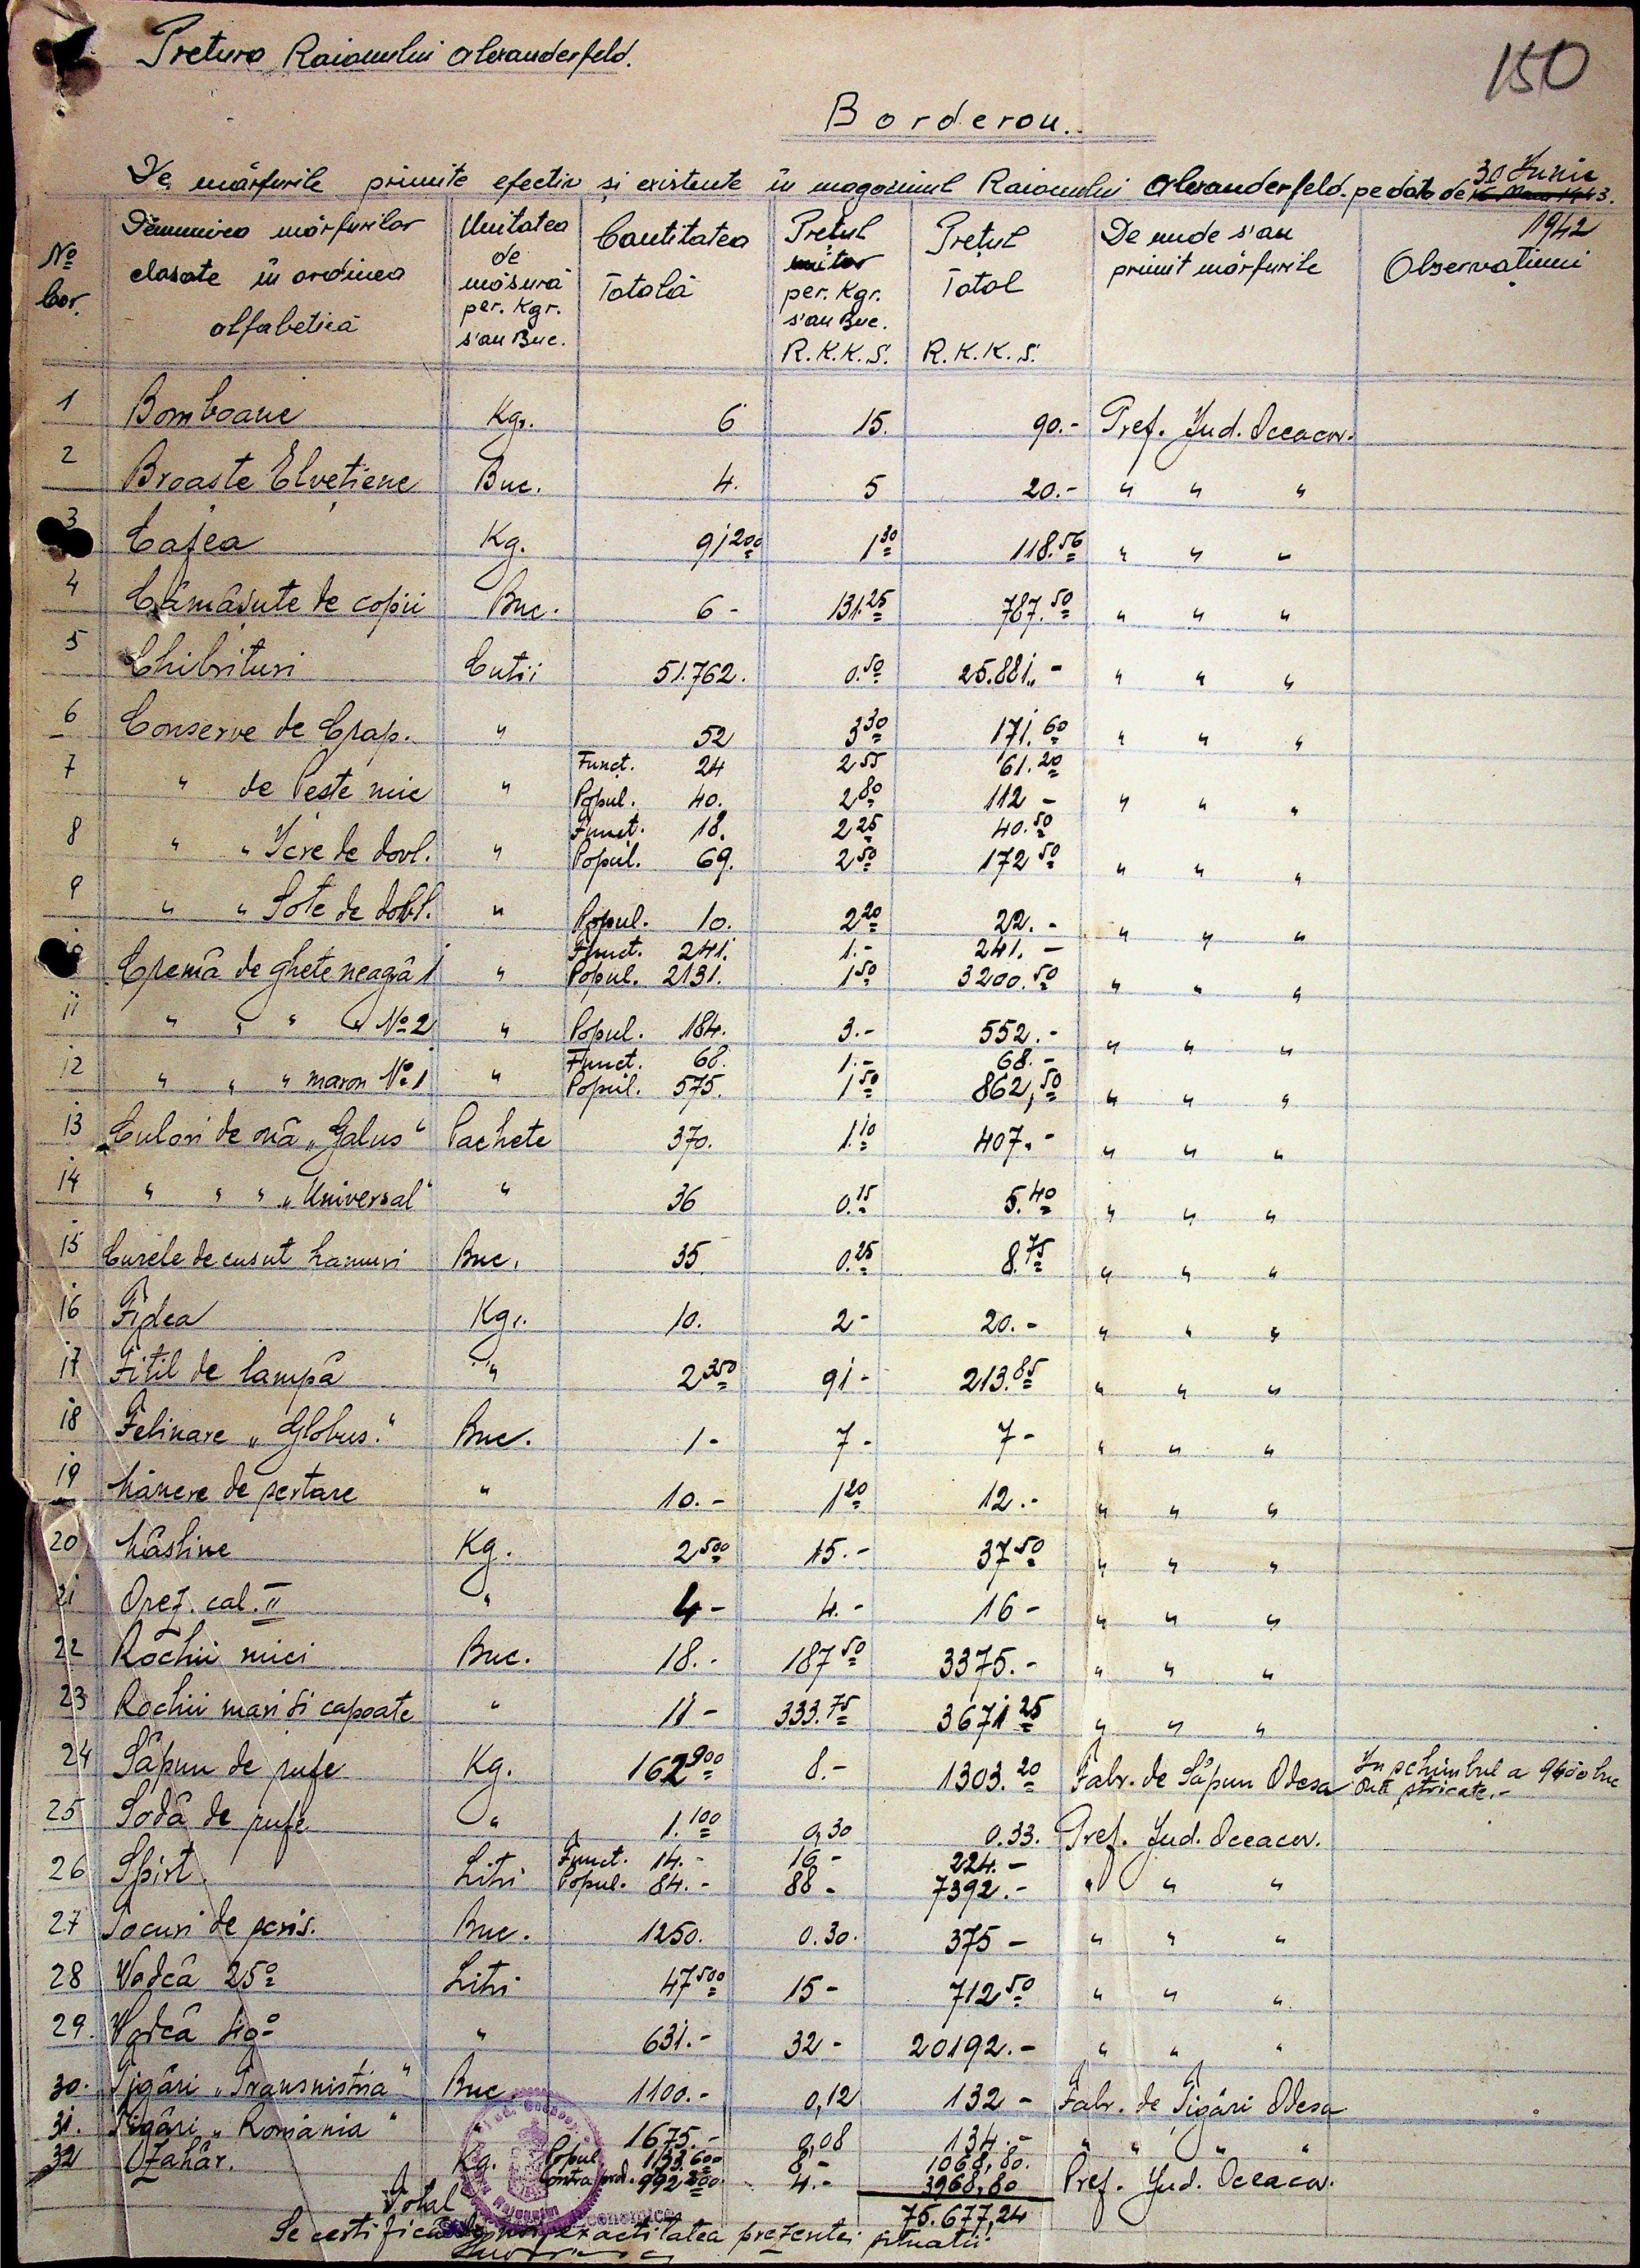 Pretura Raionului Alexanderfeld.
150
Borderou.
De mărfurile primite efectiv și existente în magazinul Raionului Alexanderfeld. pe data de 30 Iunie 1942
No Cor. | Denumirea mărfurilor clasate în ordinea alfabetică | Unitatea de măsură per. Kgr. s'au Buc. | Cantitatea Totală | Prețul unitar per. Kgr. s'au Buc. R.K.K.S. | Prețul Total R.K.K.S. | De unde s'au primit mărfurile | Observațiuni
1 Bomboane Kgr. 6 15. 90.- Pref. Jud. Oceacov.
2 Broaste Elvețiene Buc. 4. 5 20.- " " "
3 Cafea Kg. 91200 1 30 118.56 " " "
4 Cămășuțe de copii Buc. 6 - 131.25 787.50 " " "
5 Chibrituri Cutii 51.762. 0.50 25.881.- " " "
6 Conserve de Crap. " 52 3 30 171.60 " " "
7 " de Peste mic " Funct. 24 2 55 61.20
Popul. 40. 2 80 112 - " " "
8 " " Icre de dovl. " Funct. 18. 2 25 40.50
Popul. 69. 2 50 172 50 " " "
9 " " Sote de dobl. " Popul. 10. 2 20 22.- " " "
10 Cremă de ghete neagră 1 " Funct. 241. 1.- 241.-
Popul. 2131. 1 50 3200.50 " " "
11 " " " " No 2 " Popul. 184. 3.- 552.- " " "
12 " " " maron No 1 " Funct. 68. 1.- 68.-
Popul. 575. 1 50 862,50 " " "
13 Culori de ouă „Galus" Pachete 370. 1.10 407.- " " "
14 " " " „Universal" " 36 0.15 5.40 " " "
15 Curele de cusut hamuri Buc. 35 0.25 8.75 " " "
16 Fidea Kgr. 10. 2 - 20.- " " "
17 Fitil de lampă " 2 350 91 - 213.85 " " "
18 Felinare „Globus." Buc. 1 - 7 - 7 - " " "
19 Mânere de sertare " 10.- 1 20 12.- " " "
20 Măsline Kg. 2 500 15.- 37 50 " " "
21 Orez. cal. II " 4 - 4.- 16 - " " "
22 Rochii mici Buc. 18.- 187 50 3375.- " " "
23 Rochii mari si capoate " 11 - 333.75 3671 25 " " "
24 Săpun de rufe Kg. 162 900 8.- 1303.20 Fabr. de Săpun Odesa In schimbul a stricate.-
25 Sodă de rufe " 1.100 0,30 0.33. Pref. Jud. Oceacov.
26 Spirt. Litri Funct. 14.- 16 - 224.-
Popul. 84.- 88 - 7392.- " " "
27 Tocuri de scris. Buc. 1250. 0.30. 375 - " " "
28 Vodcă 25° Litri 47 500 15 - 712 50 " " "
29. Vodcă " 631.- 32 - 20192.- " " "
30. Țigări „Transnistria" Buc. 1100.- 0,12 132 - Fabr. de Țigări Odesa
31. Țigări „România" 1675.- 0,08 134.- " " " "
32 Zahăr. Kg. Popul. 133.600 8 - 1068,80.
Contra prod. 992 200 4.- 3968,80 Pref. Jud. Oceacov.
Total 75.677,24
Se certifică de noi exactitatea prezentei situatii.